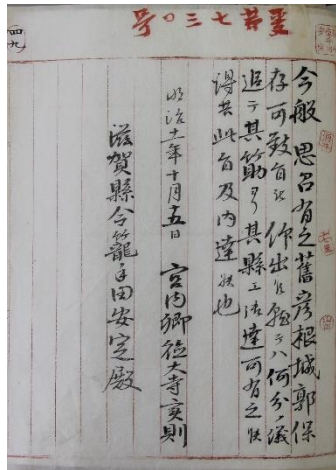 第七三〇号
今般思召有之舊彦根城郭保
存可致旨被 仰出候就テハ何分ノ儀
追テ其筋ヨリ其縣エ御達可有之候
得共此旨及内達候也
明治十一年十月十五日 宮内卿徳大寺實則
滋賀縣令籠手田安定殿